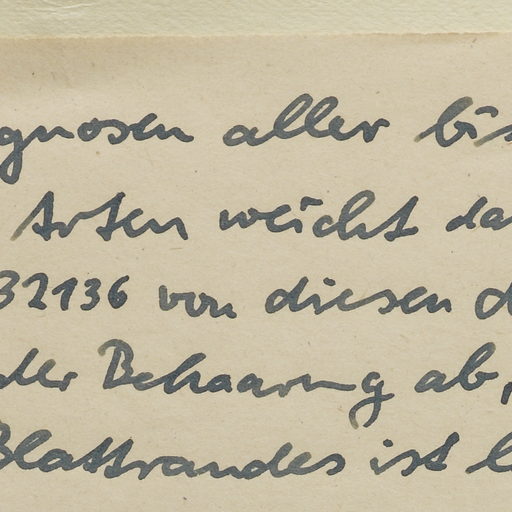 gnosen aller bis
Arten weicht da
32136 von diesen d
der Behaarung ab,
Blattrandes ist l